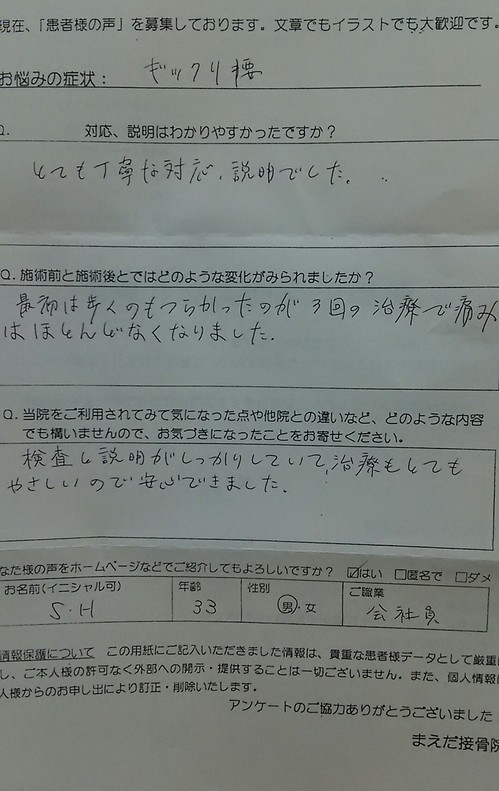 現在、「患者様の声」を募集しております。文章でもイラストでも大歓迎です。
お悩みの症状： ギックリ腰
Q. 対応、説明はわかりやすかったですか？
とても丁寧な対応、説明でした。
Q. 施術前と施術後とではどのような変化がみられましたか？
最初は歩くのもつらかったのが3回の治療で痛み
はほとんどなくなりました。
Q. 当院をご利用されてみて気になった点や他院との違いなど、どのような内容
でも構いませんので、お気づきになったことをお寄せください。
検査と説明がしっかりしていて、治療もとても
やさしいので安心できました。
なた様の声をホームページなどでご紹介してもよろしいですか？ ☑はい □匿名で □ダメ
お名前(イニシャル可) 年齢 性別 ご職業
S.H 33 男・女 会社員
情報保護について この用紙にご記入いただきました情報は、貴重な患者様データとして厳重に
し、ご本人様の許可なく外部への開示・提供することは一切ございません。また、個人情報は
人様からのお申し出により訂正・削除いたします。
アンケートのご協力ありがとうございました
まえだ接骨院